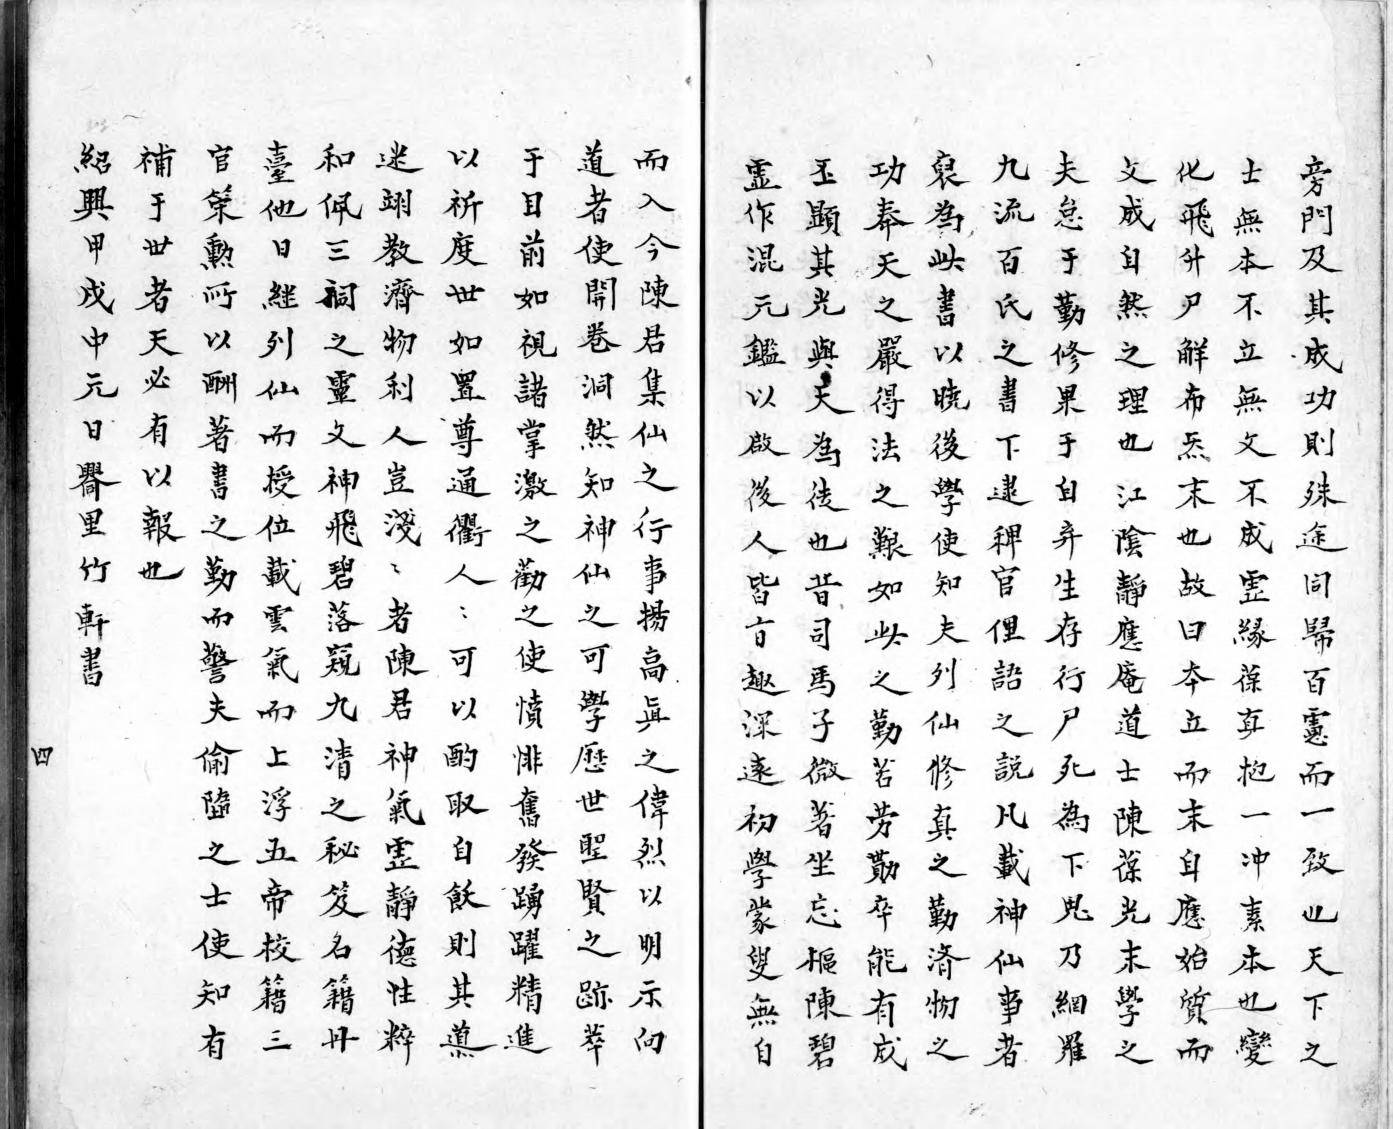 旁門及其成功則殊途同歸百慮而一致也天下之
士無本不立無文不成虛緣葆真抱一冲素本也變
化飛升尸解布炁末也故曰本立而末自應始質而
文成自然之理也江陰靜應庵道士陳葆光末學之
夫怠于勤修果于自弃生存行尸死為下鬼乃網羅
九流百氏之書下逮稗官俚語之說凡載神仙事者
裒為此書以曉後學使知夫列仙修真之勤濟物之
功奉天之嚴得法之艱如此之勤苦勞勩卒能有成
丕顯其光與天為徒也昔司馬子微著坐忘樞陳碧
虛作混元鑑以啟後人皆㫖趣深遠初學蒙叟無自
而入今陳君集仙之行事揚高眞之偉烈以明示向
道者使開卷洞然知神仙之可學歷世聖賢之跡萃
于目前如視諸掌激之勸之使憤悱奮發踴躍精進
以祈度世如置尊通衢人〻可以酌取自飫則其導
迷翊教濟物利人豈淺〻者陳君神氣虛靜德性粹
和佩三祠之靈文神飛碧落窺九清之秘笈名籍丹
臺他日繼列仙而授位載雲氣而上浮五帝校籍三
官策勲所以酬著書之勤而警夫偷墮之士使知有
補于世者天必有以報也
紹興甲戌中元日釁里竹軒書
四